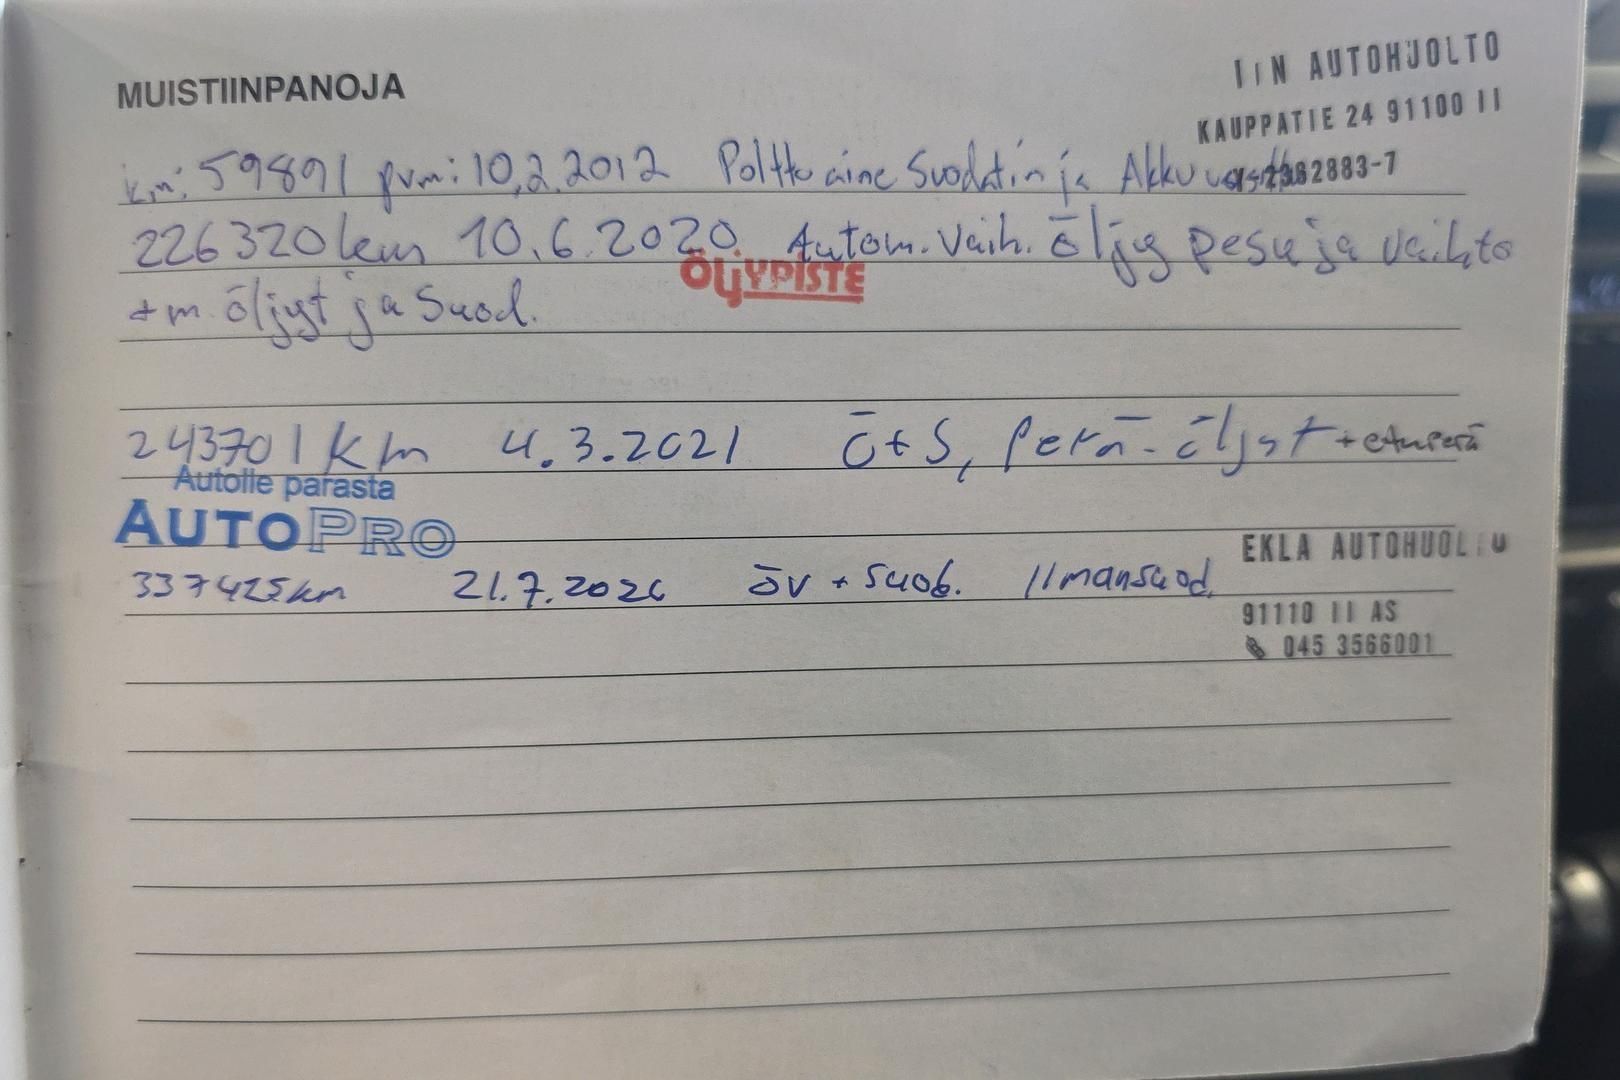 MUISTIINPANOJA
IIN AUTOHUOLTO
KAUPPATIE 24 91100 II
km: 59891 pvm: 10.2.2012 Polttoaine Suodatin ja Akku 2362883-7
226320km 10.6.2020 Autom. vaih. öljy pesu ja vaihto
ÖLJYPISTE
+ m. öljyt ja Suod.
243701 km 4.3.2021 Ö+S, Perä-öljyt + etuperä
Autolle parasta
AUTOPRO
EKLA AUTOHUOLTO
337425km 21.7.2026 öv + suod. Ilmansuod.
91110 II AS
045 3566001